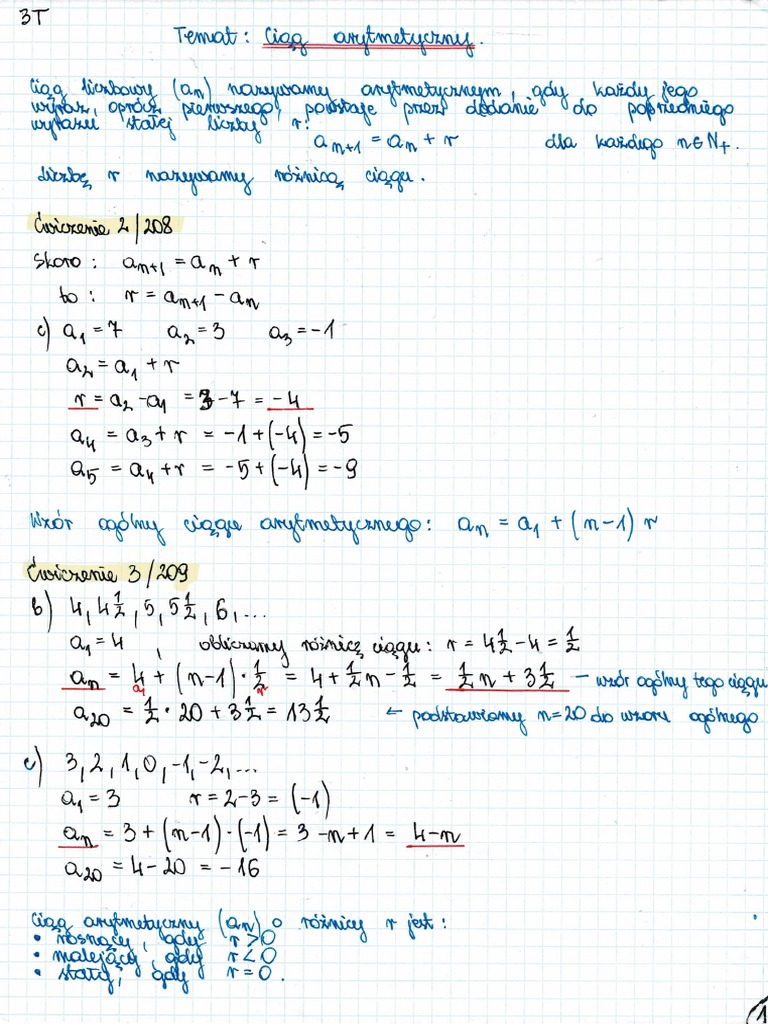 3T
Temat: Ciąg arytmetyczny.
Ciąg liczbowy (aₙ) nazywamy arytmetycznym, gdy każdy jego
wyraz, oprócz pierwszego, powstaje przez dodanie do poprzedniego
wyrazu stałej liczby r:
aₙ₊₁ = aₙ + r dla każdego n∈N₊.
Liczbę r nazywamy różnicą ciągu.
Ćwiczenie 2/208
Skoro: aₙ₊₁ = aₙ + r
to: r = aₙ₊₁ - aₙ
c) a₁ = 7 a₂ = 3 a₃ = -1
a₂ = a₁ + r
r = a₂ - a₁ = 3 - 7 = -4
a₄ = a₃ + r = -1 + (-4) = -5
a₅ = a₄ + r = -5 + (-4) = -9
Wzór ogólny ciągu arytmetycznego: aₙ = a₁ + (n-1) r
Ćwiczenie 3/209
b) 4, 4½, 5, 5½, 6, ...
a₁ = 4, obliczamy różnicę ciągu: r = 4½ - 4 = ½
aₙ = 4 + (n-1) · ½ = 4 + ½n - ½ = ½n + 3½ – wzór ogólny tego ciągu
a₁ r
a₂₀ = ½ · 20 + 3½ = 13½ ← podstawiamy n=20 do wzoru ogólnego
c) 3, 2, 1, 0, -1, -2, ...
a₁ = 3 r = 2 - 3 = (-1)
aₙ = 3 + (n-1) · (-1) = 3 - n + 1 = 4 - n
a₂₀ = 4 - 20 = -16
Ciąg arytmetyczny (aₙ) o różnicy r jest:
• rosnący, gdy r > 0
• malejący, gdy r < 0
• stały, gdy r = 0.
1